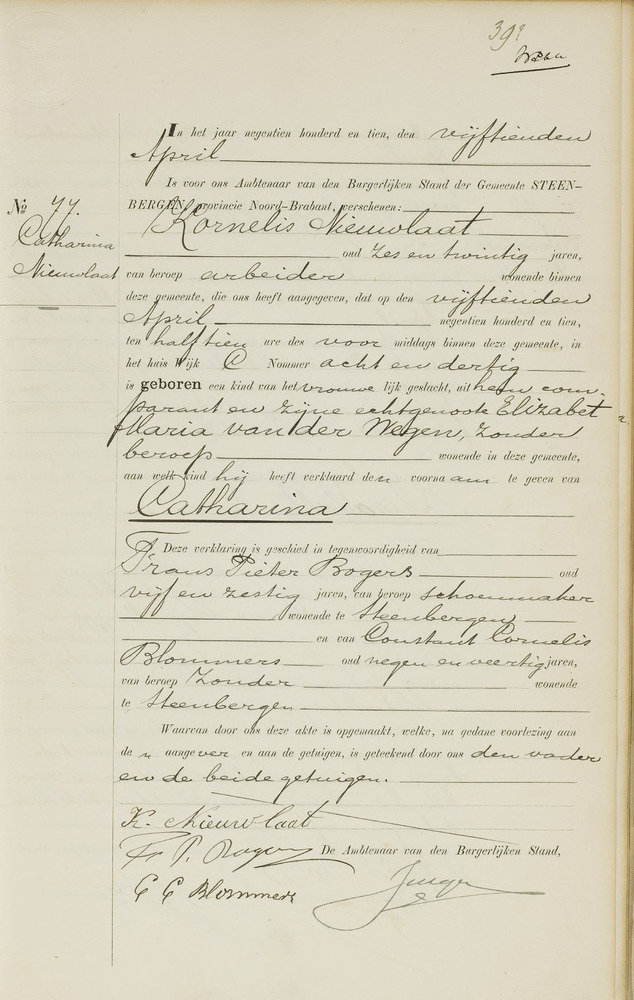 39e
In het jaar negentien honderd en tien, den vijftienden
April
Is voor ons Ambtenaar van den Burgerlijken Stand der Gemeente STEEN-
No 77. BERGEN, provincie Noord-Brabant, verschenen:
Catharina Nieuwlaat
Kornelis Nieuwlaat
oud zes en twintig jaren,
van beroep arbeider wonende binnen
deze gemeente, die ons heeft aangegeven, dat op den vijftienden
April negentien honderd en tien,
ten half tien ure des voor middags binnen deze gemeente, in
het huis Wijk C Nommer acht en dertig
is geboren een kind van het vrouwe lijk geslacht, uit hem com-
parant en zijne echtgenoote Elizabet
Maria van der Wegen, zonder
beroep wonende in deze gemeente,
aan welk kind hij heeft verklaard den voornaam te geven van
Catharina
Deze verklaring is geschied in tegenwoordigheid van
Frans Pieter Bogers oud
vijf en zestig jaren, van beroep schoenmaker
wonende te Steenbergen
en van Constant Cornelis
Blommers oud negen en veertig jaren,
van beroep zonder wonende
te Steenbergen
Waarvan door ons deze akte is opgemaakt, welke, na gedane voorlezing aan
den aangever en aan de getuigen, is geteekend door ons den vader
en de beide getuigen.
K. Nieuwlaat
F. P. Bogers De Ambtenaar van den Burgerlijken Stand,
C C Blommers